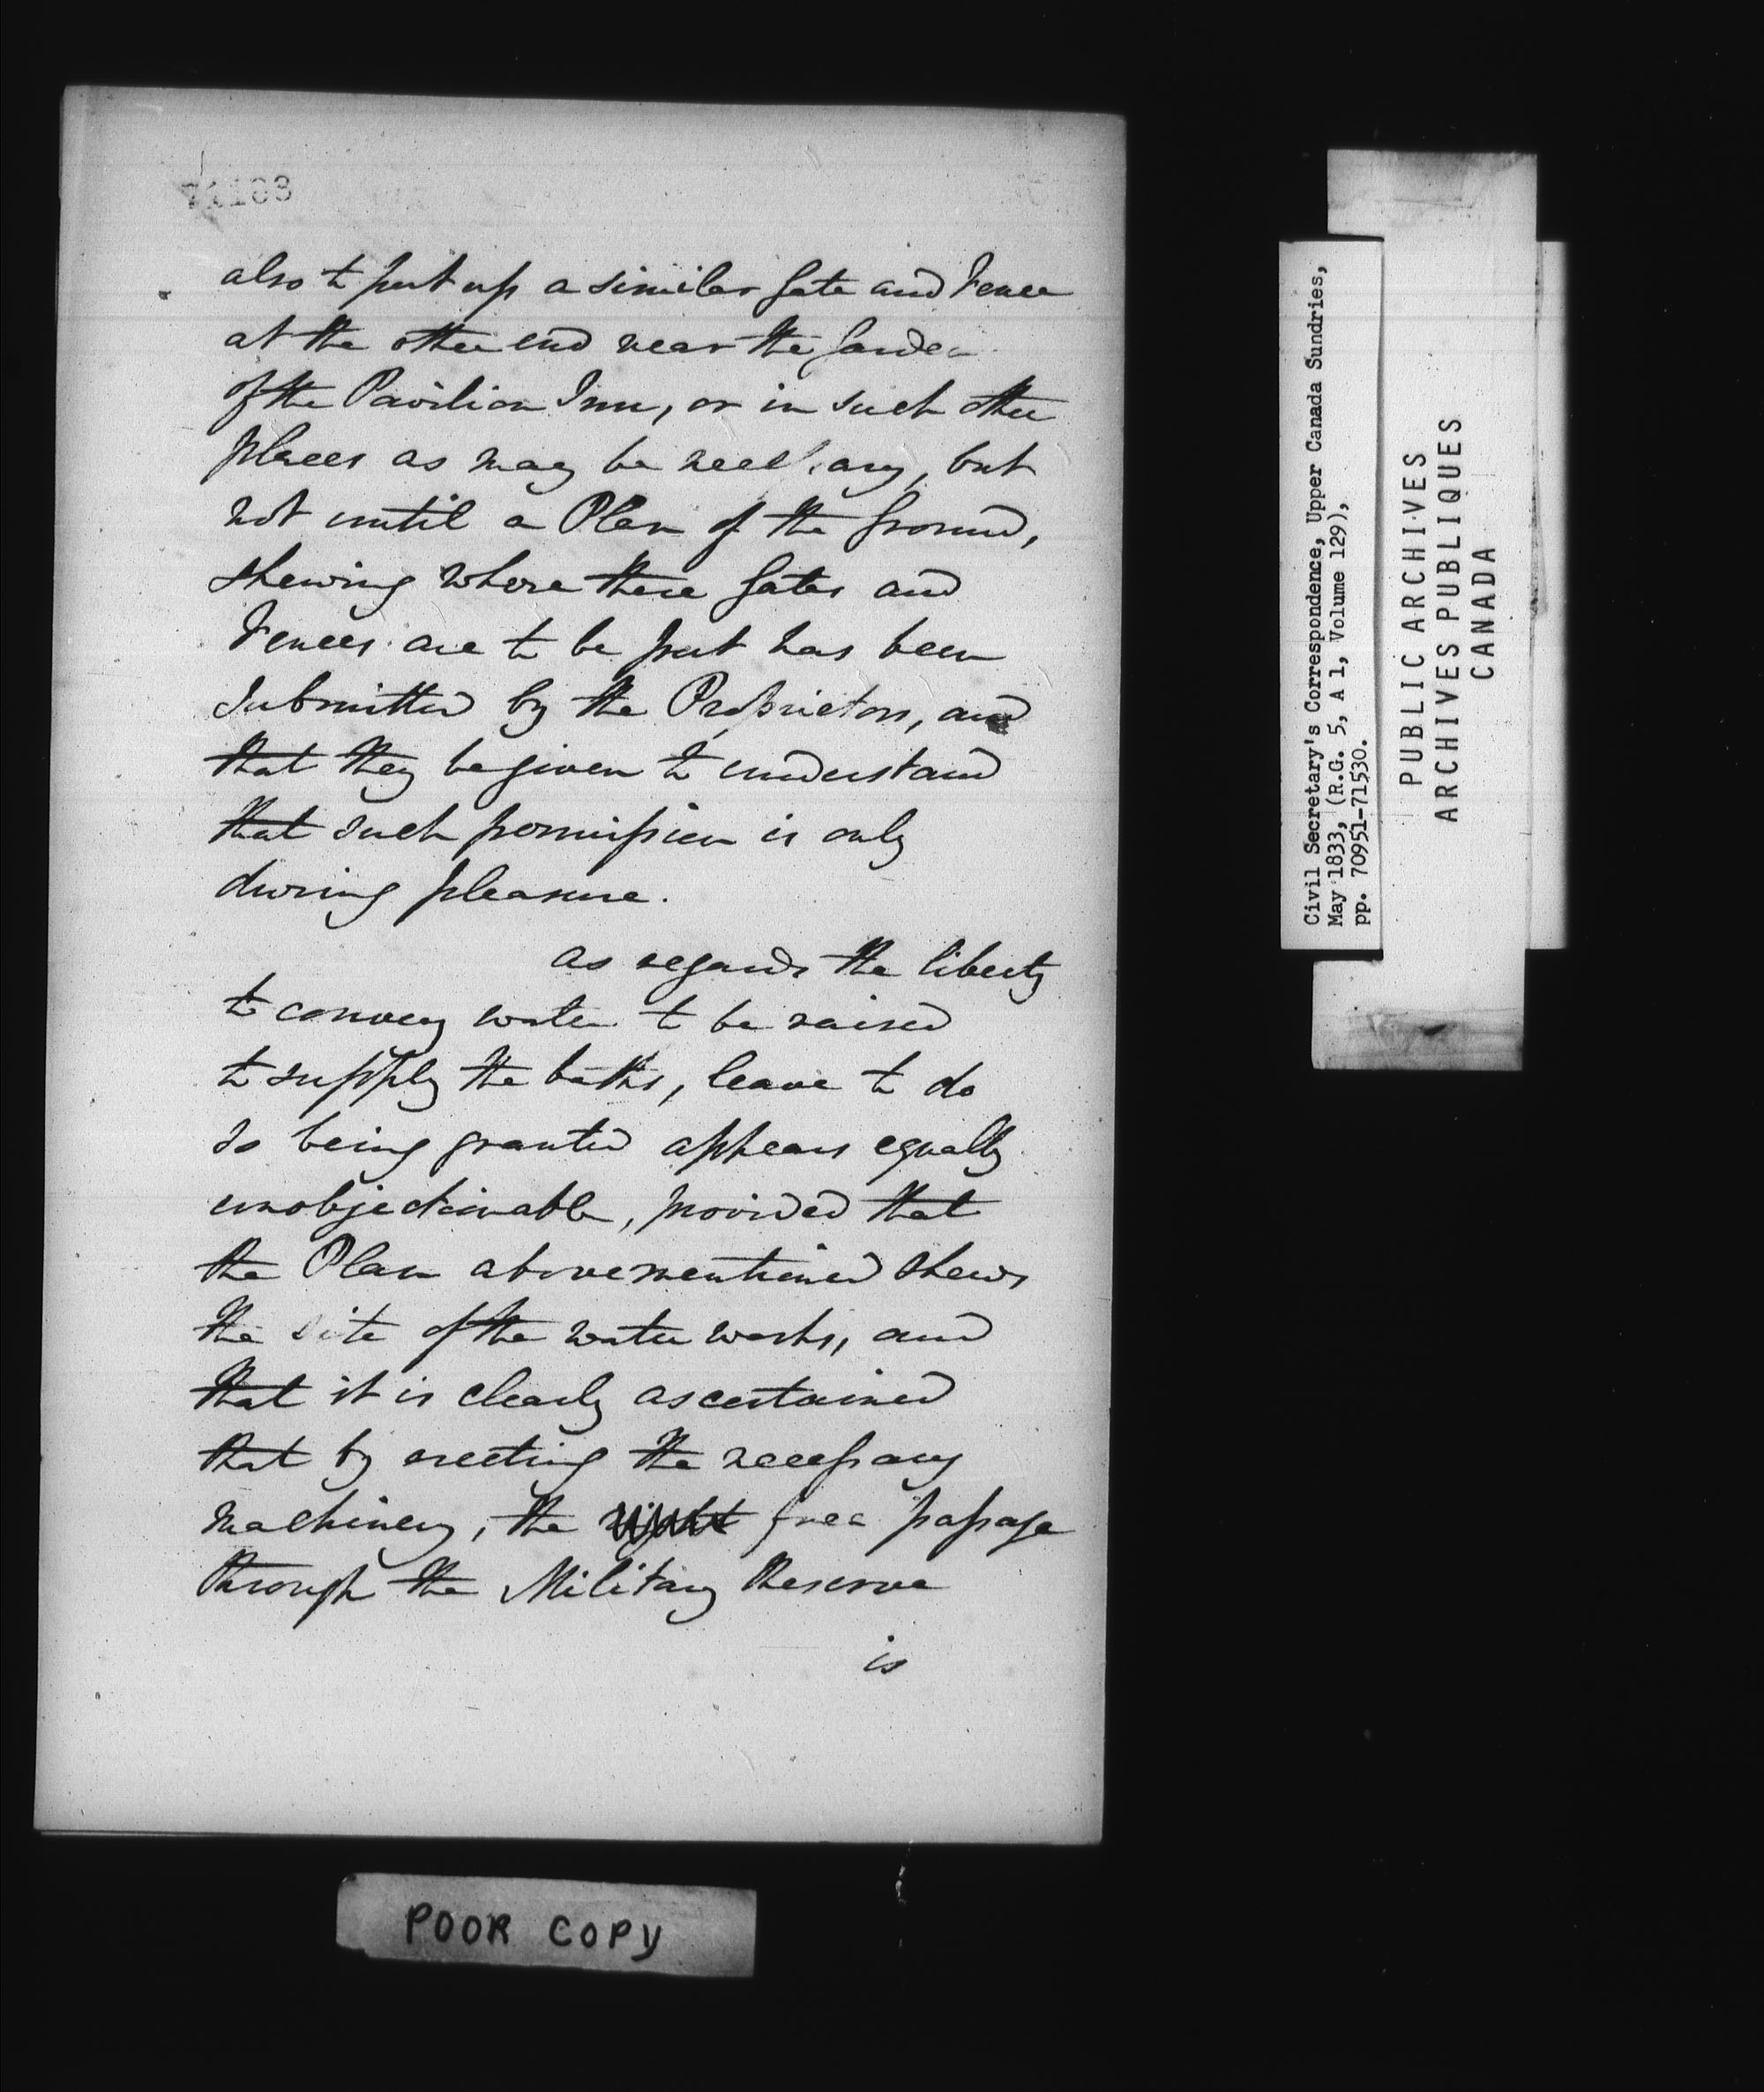 71103
also to put up a similar Gate and Fence
at the other end near the Garden
of the Pavilion Inn, or in such other
places as may be necessary, but
not until a Plan of the Ground,
shewing where these Gates and
Fences are to be put has been
submitted by the Proprietors, and
that they be given to understand
that such permission is only
during pleasure.
As regards the liberty
to convey water to be raised
to supply the baths, leave to do
so being granted appears equally
unobjectionable, provided that
the Plan abovementioned shews
the site of the water works, and
that it is clearly ascertained
that by erecting the necessary
machinery, the free passage
through the Military Reserve
is
POOR COPY
Civil Secretary's Correspondence, Upper Canada Sundries,
May 1833, (R.G. 5, A 1, Volume 129),
pp. 70951-71530.
PUBLIC ARCHIVES
ARCHIVES PUBLIQUES
CANADA